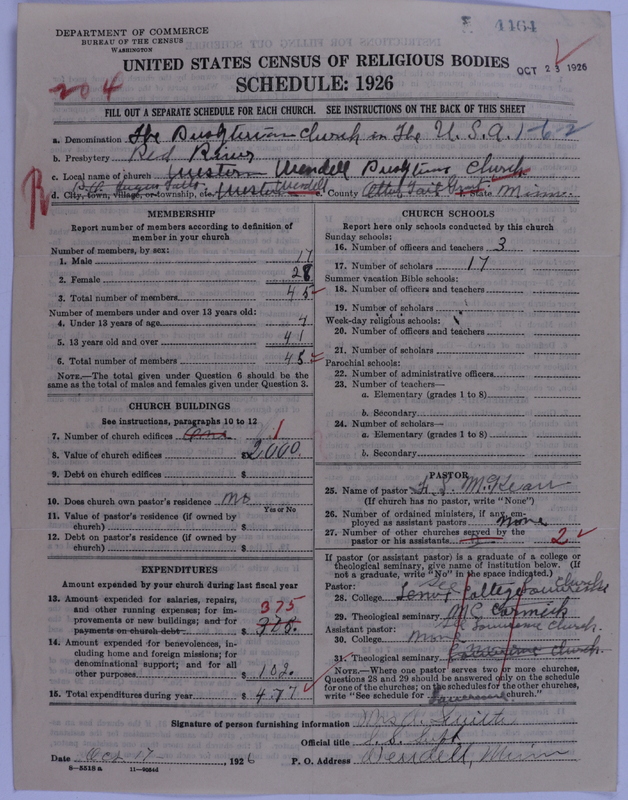 DEPARTMENT OF COMMERCE
BUREAU OF THE CENSUS
WASHINGTON
1164
UNITED STATES CENSUS OF RELIGIOUS BODIES
OCT 23 1926
SCHEDULE: 1926
204
FILL OUT A SEPARATE SCHEDULE FOR EACH CHURCH. SEE INSTRUCTIONS ON THE BACK OF THIS SHEET
a. Denomination The Presbyterian Church in The U.S.A. 1-62
b. Presbytery Red River
c. Local name of church Western Wendell Presbyterian Church
d. City, town, village, or township, etc. Western Wendell e. County Otter Tail Grant f. State Minne.
MEMBERSHIP
Report number of members according to definition of member in your church
Number of members, by sex:
1. Male 17
2. Female 28
3. Total number of members 45
Number of members under and over 13 years old:
4. Under 13 years of age 4
5. 13 years old and over 41
6. Total number of members 45
NOTE.—The total given under Question 6 should be same as the total of males and females given under Question 3.
CHURCH BUILDINGS
See instructions, paragraphs 10 to 12
7. Number of church edifices One 1
8. Value of church edifices $2000
9. Debt on church edifices $
10. Does church own pastor's residence no
Yes or No
11. Value of pastor's residence (if owned by church) $
12. Debt on pastor's residence (if owned by church) $
EXPENDITURES
Amount expended by your church during last fiscal year
13. Amount expended for salaries, repairs, and other running expenses; for improvements or new buildings; and for payments on church debt $ 375
14. Amount expended for benevolences, including home and foreign missions; for denominational support; and for all other purposes $ 102.
15. Total expenditures during year $ 477
CHURCH SCHOOLS
Report here only schools conducted by this church
Sunday schools:
16. Number of officers and teachers 3
17. Number of scholars 17
Summer vacation Bible schools:
18. Number of officers and teachers
19. Number of scholars
Week-day religious schools:
20. Number of officers and teachers
21. Number of scholars
Parochial schools:
22. Number of administrative officers
23. Number of teachers—
a. Elementary (grades 1 to 8)
b. Secondary
24. Number of scholars—
a. Elementary (grades 1 to 8)
b. Secondary
PASTOR
25. Name of pastor F. J. McKean
(If church has no pastor, write "None")
26. Number of ordained ministers, if any, employed as assistant pastors none
27. Number of other churches served by the pastor or his assistants 2
If pastor (or assistant pastor) is a graduate of a college or theological seminary, give name of institution below. (If not a graduate, write "No" in the space indicated.)
Pastor: See Church
28. College Lenox College
29. Theological seminary McCormick
Assistant pastor: Lawrence Church
30. College
31. Theological seminary Church
NOTE.—Where one pastor serves two or more churches, Questions 28 and 29 should be answered only on the schedule for one of the churches; on the schedules for the other churches, write "See schedule for Lawrence church."
Signature of person furnishing information Smith
Official title S. S. Supt
Date Oct 17, 1926 P. O. Address Wendell, Minn
8—5518 a 11—9064d